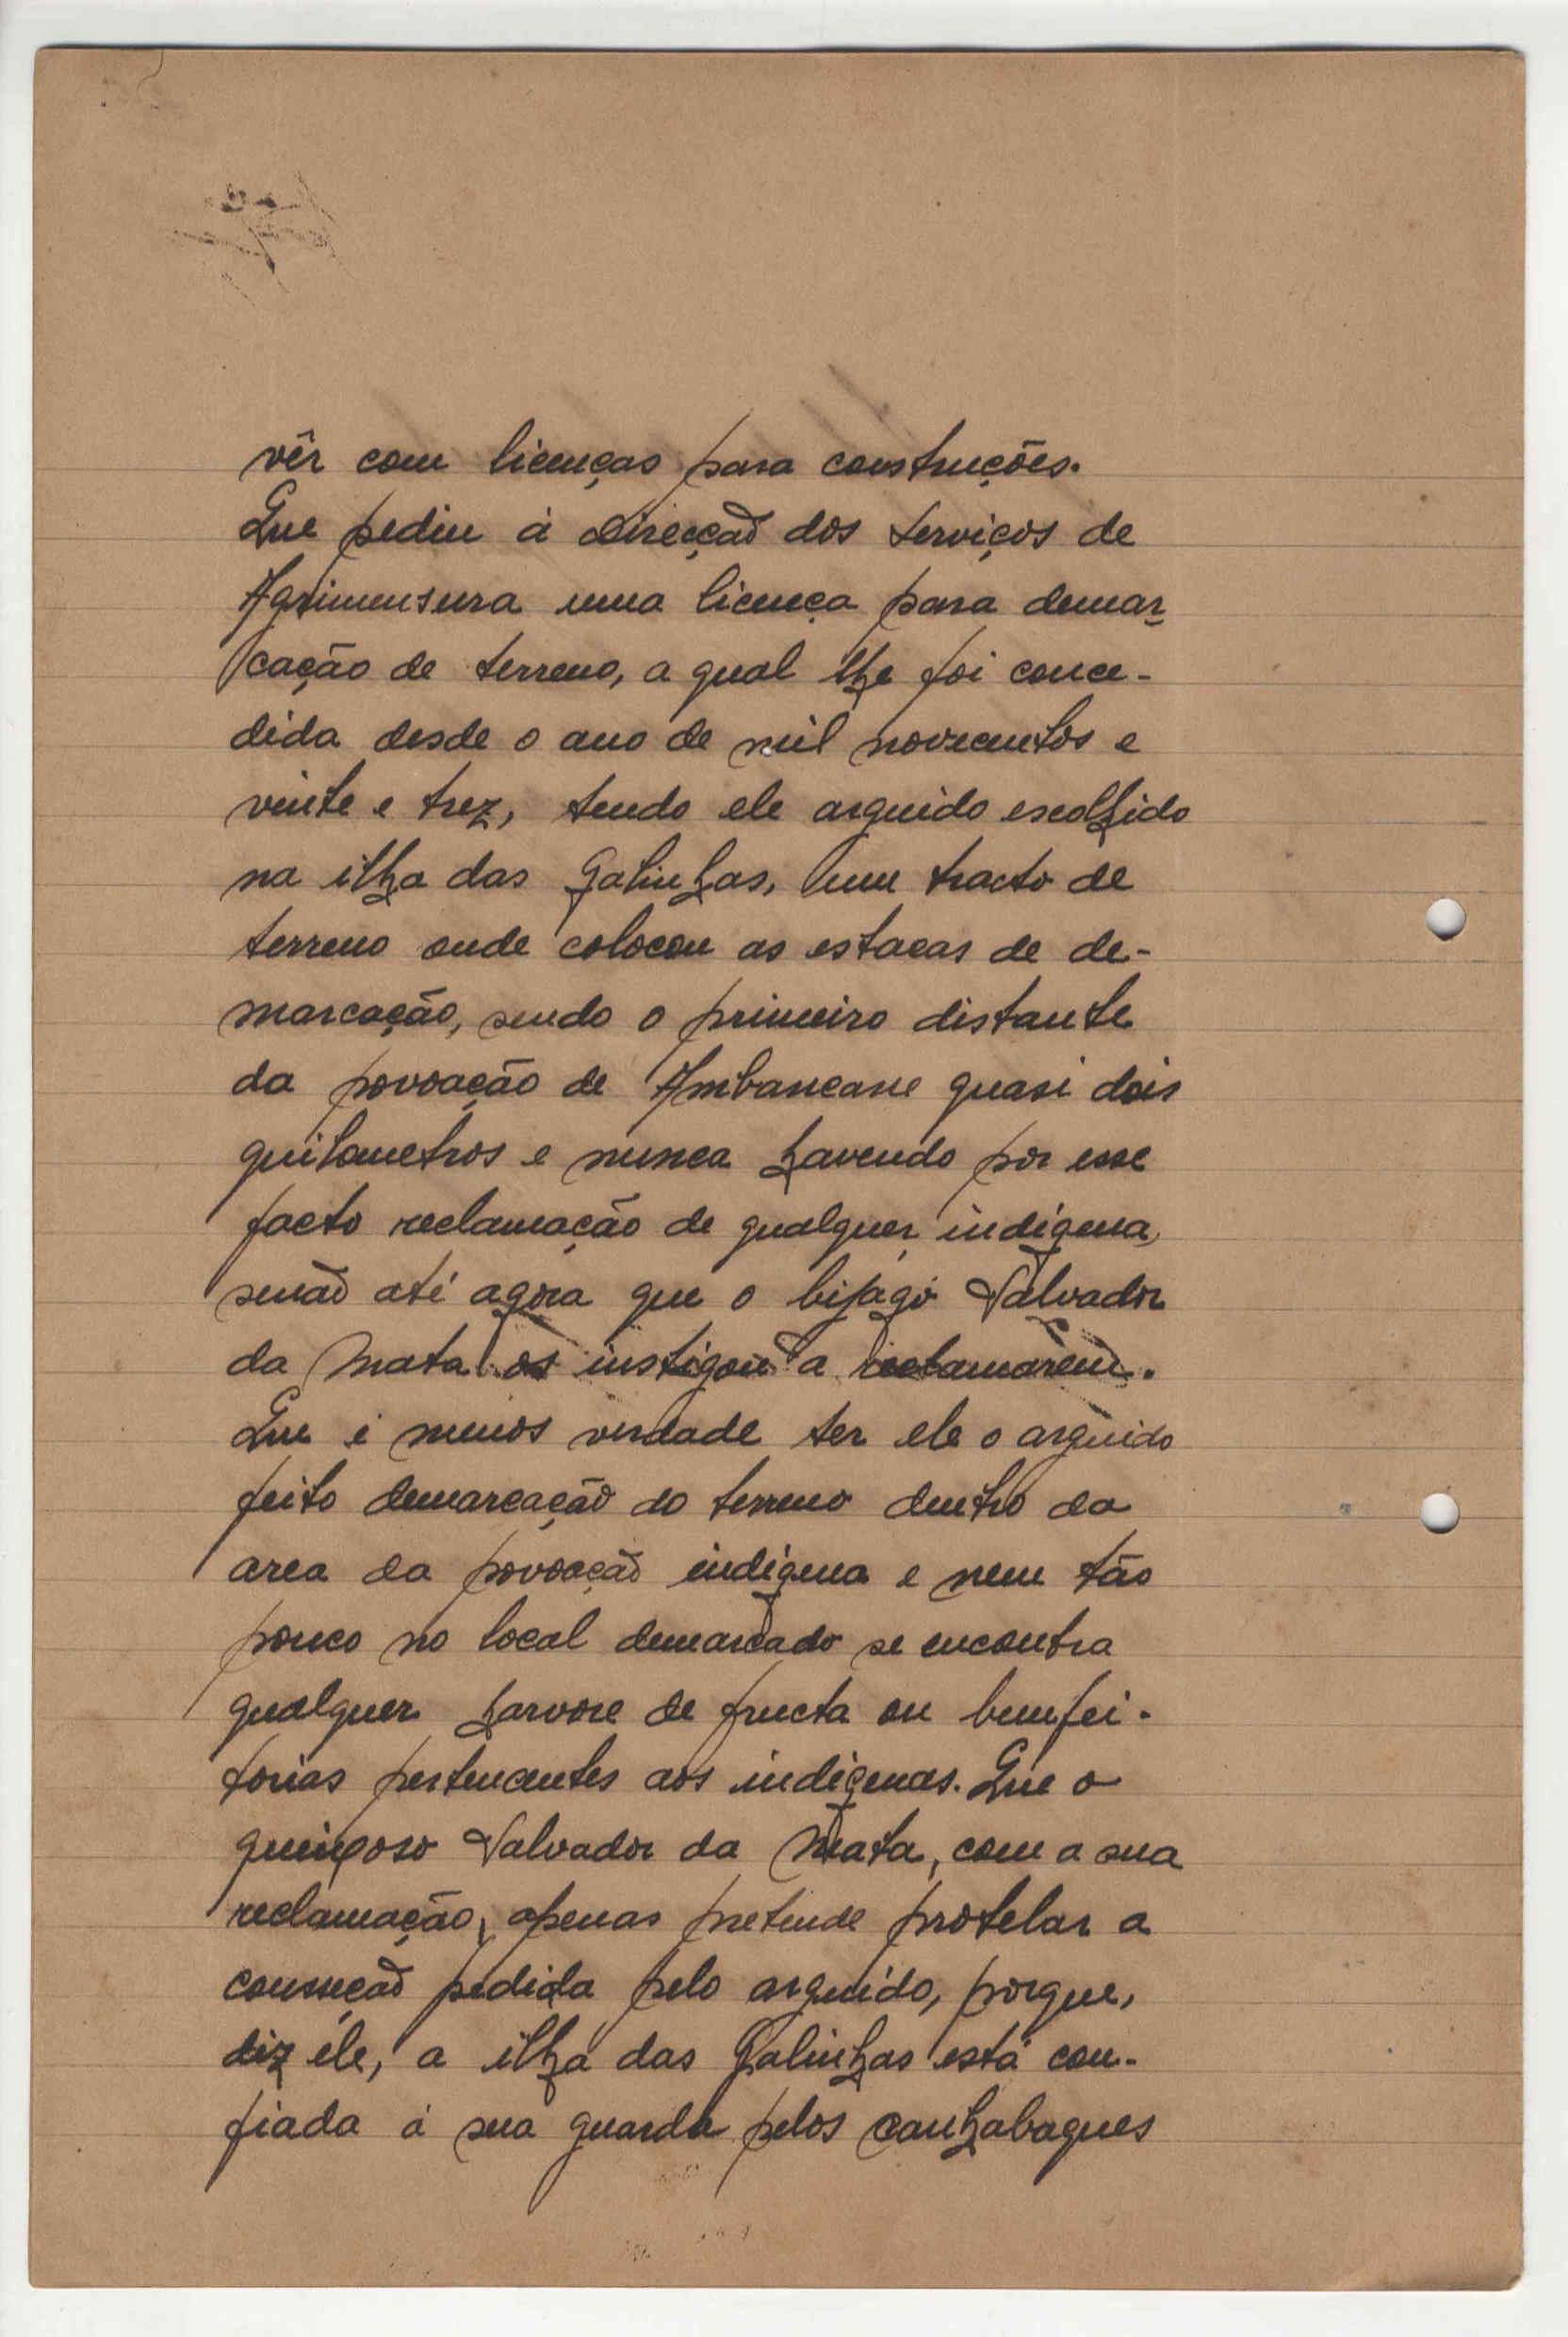 vêr com licenças para construções.
Que pediu á Direcção dos Serviços de
Agrimensura uma licença para demar-
cação de terreno, a qual lhe foi conce-
dida desde o ano de mil novecentos e
vinte e trez, tendo ele arguido escolhido
na ilha das Galinhas, um tracto de
terreno onde colocou as estacas de de-
marcação, sendo o primeiro distante
da povoação de Ambancane quasi dois
quilometros e nunca havendo por esse
facto reclamação de qualquer indigena,
senão até agora que o bijagó Salvador
da Mata os instigou a reclamarem.
Que é menos verdade ter ele o arguido
feito demarcação do terreno dentro da
area da povoação indigena e nem tão
pouco no local demarcado se encontra
qualquer harvore de fructa ou bemfei-
torias pertencentes aos indigenas. Que o
queixoso Salvador da Mata, com a sua
reclamação, apenas pretende protelar a
conseção pedida pelo arguido, porque,
diz éle, a ilha das Galinhas está con-
fiada á sua guarda pelos canhabaques